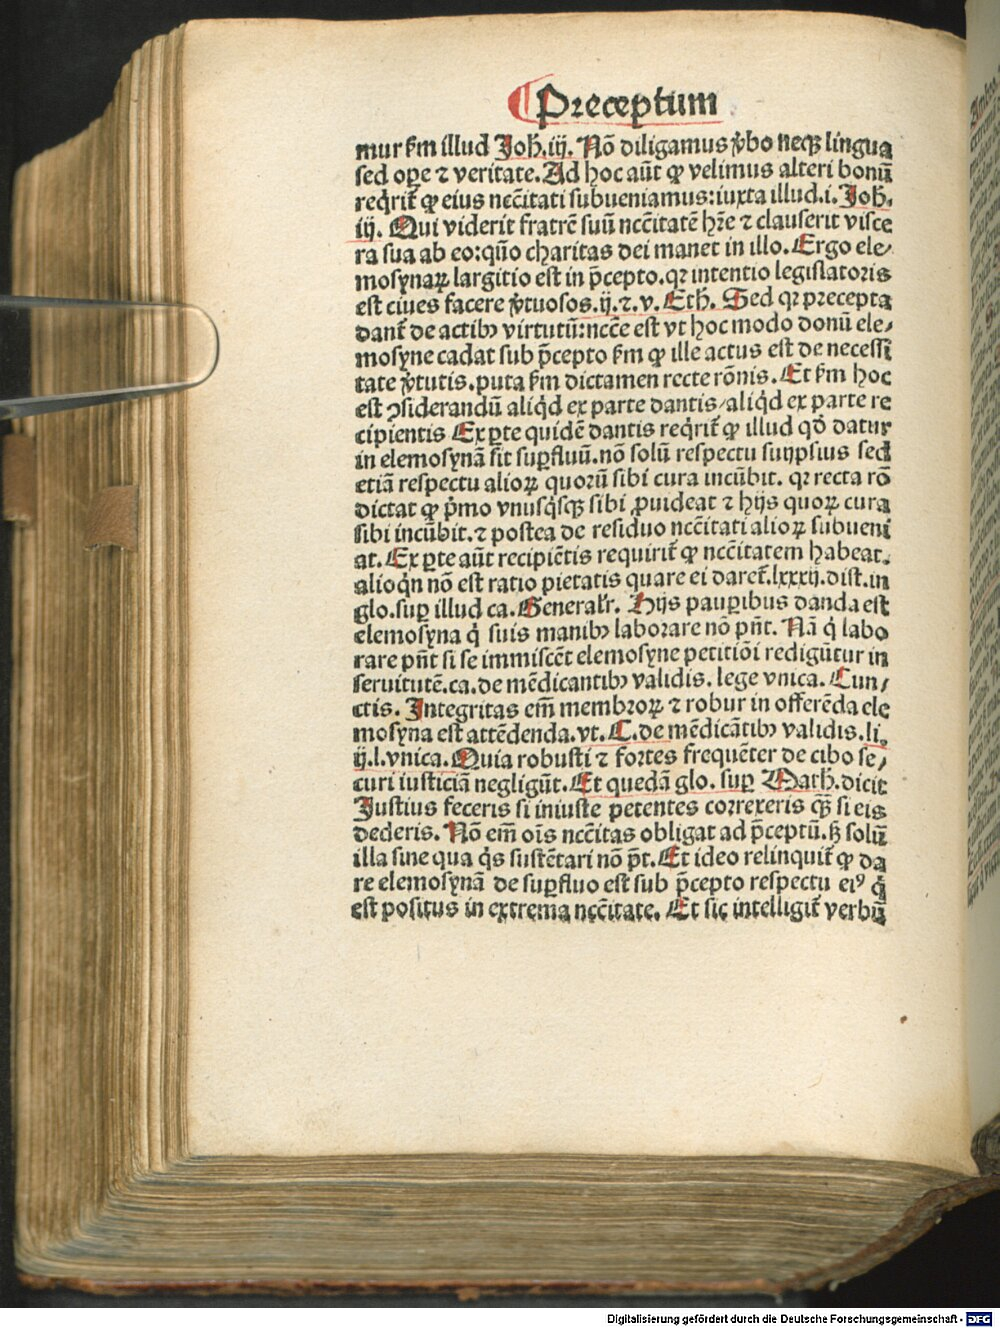 Preceptum
mur ẜm illud Joh̄.iij. Nō diligamus v̓bo neqꝫ lingua
sed oꝑe ⁊ veritate. Ad hoc aūt ꝙ velimus alteri bonū
reqͥrit̄ ꝙ eius nc̄citati subueniamus: iuxta illud.i. Joh̄.
iij. Qui viderit fratrē suū nc̄citatē hr̄e ⁊ clauserit visce
ra sua ab eo: qūo charitas dei manet in illo. Ergo ele⸗
mosynaꝝ largitio est in p̄cepto. qꝛ intentio legislatoris
est ciues facere v̓tuosos. ij. ⁊. v. Eth̄. Sed qꝛ precepta
dant̄ de actibꝰ virtutū: nc̄ce est vt hoc modo donū ele⸗
mosyne cadat sub p̄cepto ẜm ꝙ ille actus est de necessi
tate v̓tutis. puta ẜm dictamen recte rōnis. Et ẜm hoc
est ꝯsiderandū aliqͥd ex parte dantis/ aliqͥd ex parte re
cipientis Ex ꝑte quidē dantis reqͥrit̄ ꝙ illud qd̄ datur
in elemosynā sit suꝑfluū. nō solū respectu suijpsius sed
etiā respectu alioꝝ quorū sibi cura incūbit. qꝛ recta rō
dictat ꝙ pͥmo vnusqͥsqꝫ sibi ꝓuideat ⁊ hijs quoꝝ cura
sibi incūbit. ⁊ postea de residuo nc̄citati alioꝝ subueni
at. Ex ꝑte aūt recipiētis requirit̄ ꝙ nc̄citatem habeat.
alioqͥn nō est ratio pietatis quare ei daret̄. lxxxij. dist. in
glo. suꝑ illud ca. Generalr̄. Hijs pauꝑibus danda est
elemosyna qͥ suis manibꝰ laborare nō pn̄t. Nā qͥ labo
rare pn̄t si se immiscēt elemosyne petitiōi redigūtur in
seruitutē. ca. de mēdicantibꝰ validis. lege vnica. Cun⸗
ctis. Integritas em̄ membroꝝ ⁊ robur in offerēda ele
mosyna est attēdenda. vt. C. de mēdicātibꝰ validis. li.
ij. l. vnica. Quia robusti ⁊ fortes frequēter de cibo se⸗
curi iusticiā negligūt. Et quedā glo. suꝑ Math̄. dicit
Justius feceris si iniuste petentes correxeris qꝫ̄ si eis
dederis. Nō em̄ oīs nc̄citas obligat ad p̄ceptū. ſꝫ solū
illa sine qua qͥs sustētari nō pt̄. Et ideo relinquit̄ ꝙ da
re elemosynā de suꝑfluo est sub p̄cepto respectu eiꝰ qͥ
est positus in extrema nc̄citate. Et sic intelligit̄ verbū
Digitalisierung gefördert durch die Deutsche Forschungsgemeinschaft - DFG